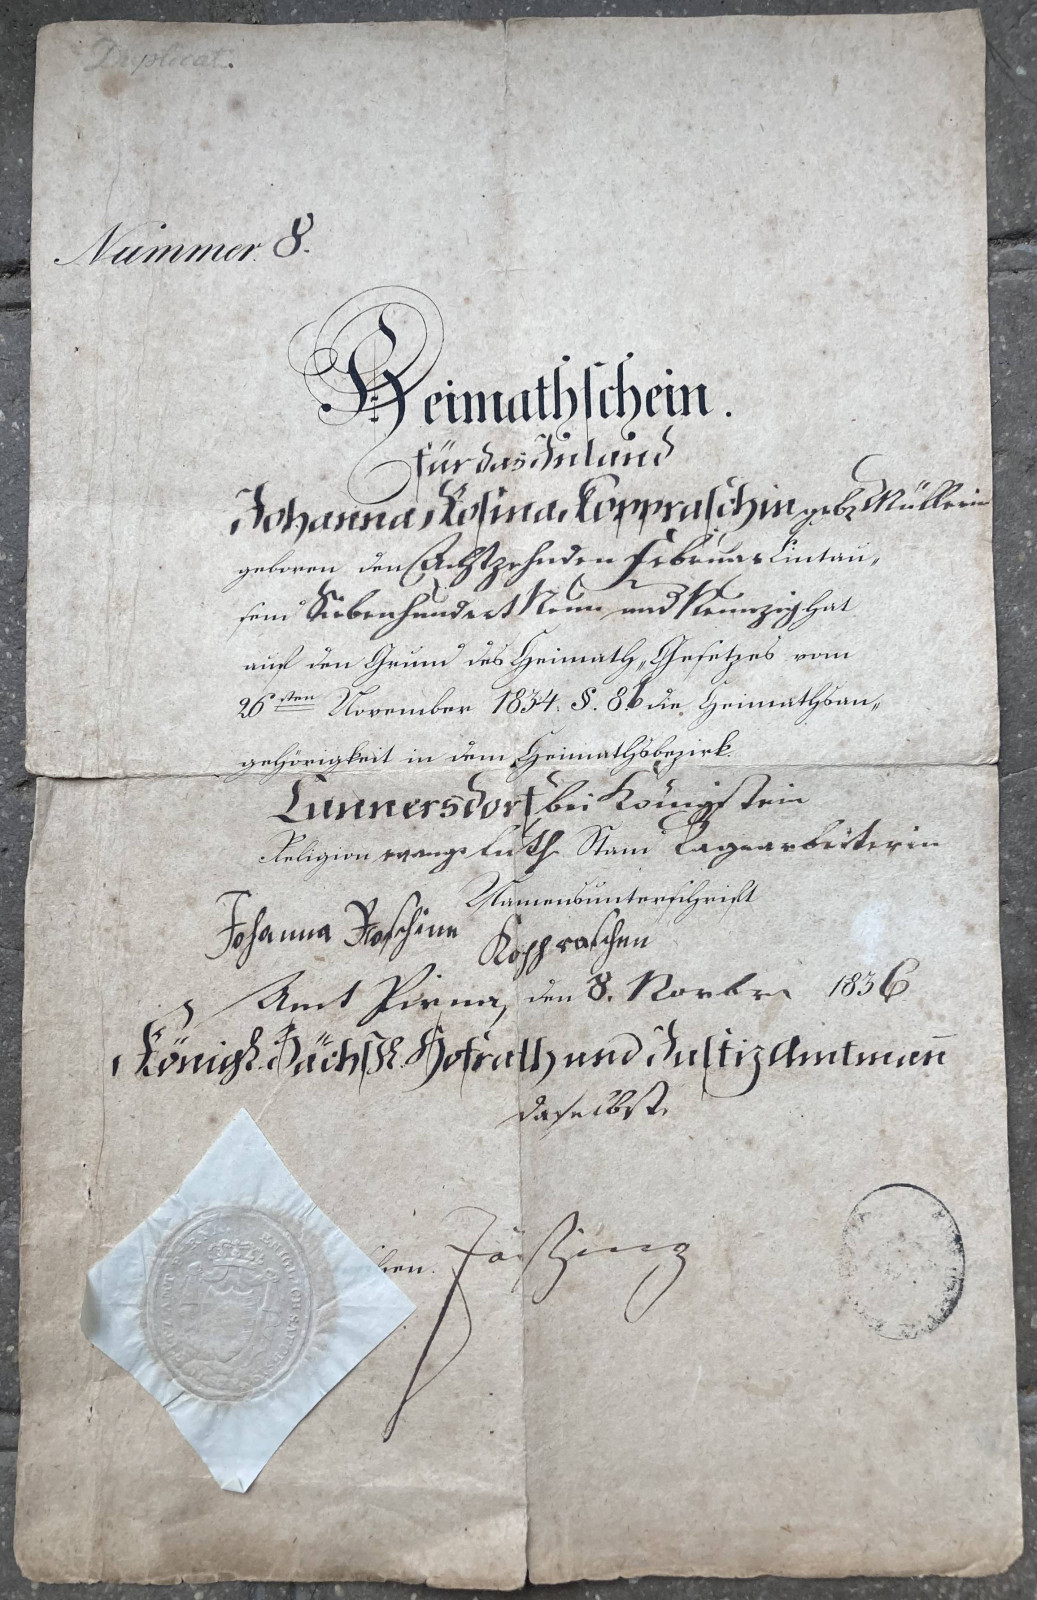 Duplicat.
Nummer. 8.
Heimathschein.
für das Inland
Johanna Rosina Koppraschin geb. Müllerin
geboren den Achtzehnden Februar Eintau„
send Siebenhundert Neun und Neunzig hat
auf den Grund des Heimath„Gesetzes vom
26sten November 1834. §. 8 die Heimathsan„
gehörigkeit in dem Heimathsbezirk
Cunnersdorf bei Königstein
Religion evang. Luth. Stand Tagearbeiterin
Namensunterschrift
Johanna Roschine Koppraschen
Amt Pirna, den 8. Novbr. 1836
Königl. Sächß. Hofrath und Justiz Amtmann
daselbst.